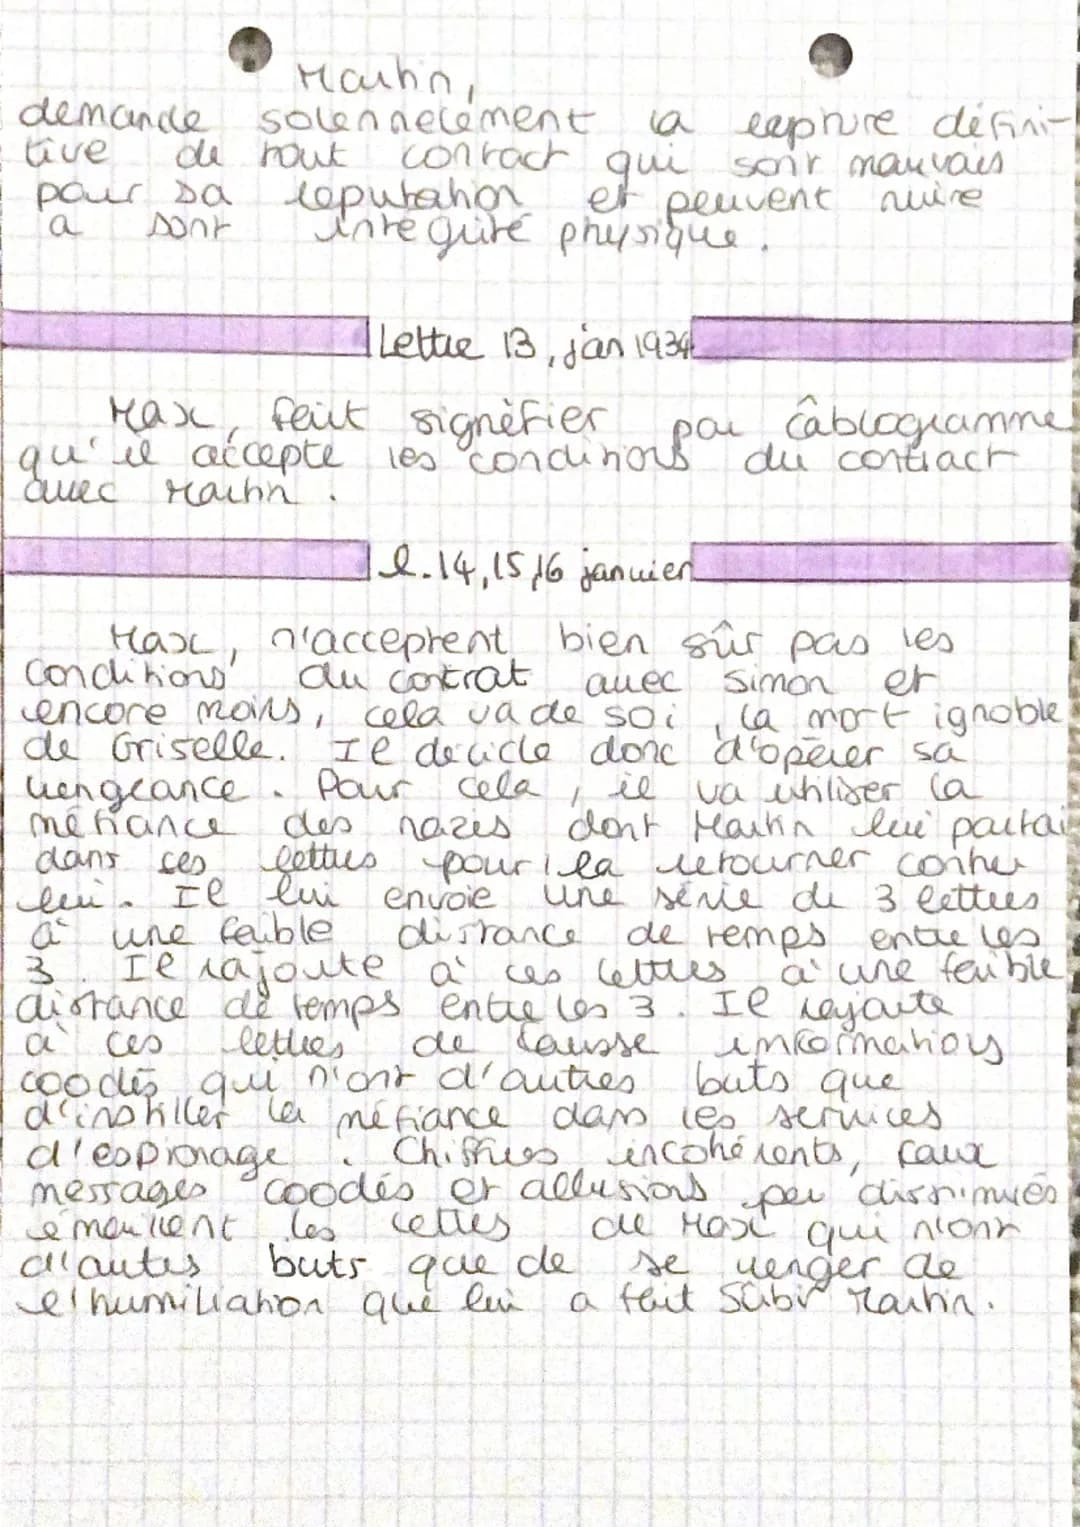 Martin,
demande solennelement la rupture défini-
tive de tout contact qui sont mauvais
pour sa reputation et peuvent nuire
a sont intégrité physique.
Lettre 13, jan 1934
Max, fait signifier par câblogramme
qu'il accepte les conditions du contract
avec Martin.
l. 14, 15, 16 janvier
Max, n'acceptent bien sûr pas les
conditions du contrat avec Simon et
encore moins, cela va de soi, la mort ignoble
de Griselle. Il décide donc d'opérer sa
vengeance. Pour cela, il va utiliser la
méfiance des nazes dont Martin lui partai
dans ces lettres pour la retourner contre
lui. Il lui envoie une série de 3 lettres
à une faible distance de temps entre les
3. Il rajoute à ces lettres à une faible
distance de temps entre les 3. Il rajoute
à ces lettres de fausse informations
coodés qui n'ont d'autres buts que
d'instiller la méfiance dans les services
d'espionage. Chiffres incohérents, faux
messages coodés et allusions peu dissimulés
émaillent les lettres de Max qui n'ont
d'autes buts que de se venger de
l'humiliation que lui a fait sûbir Martin.